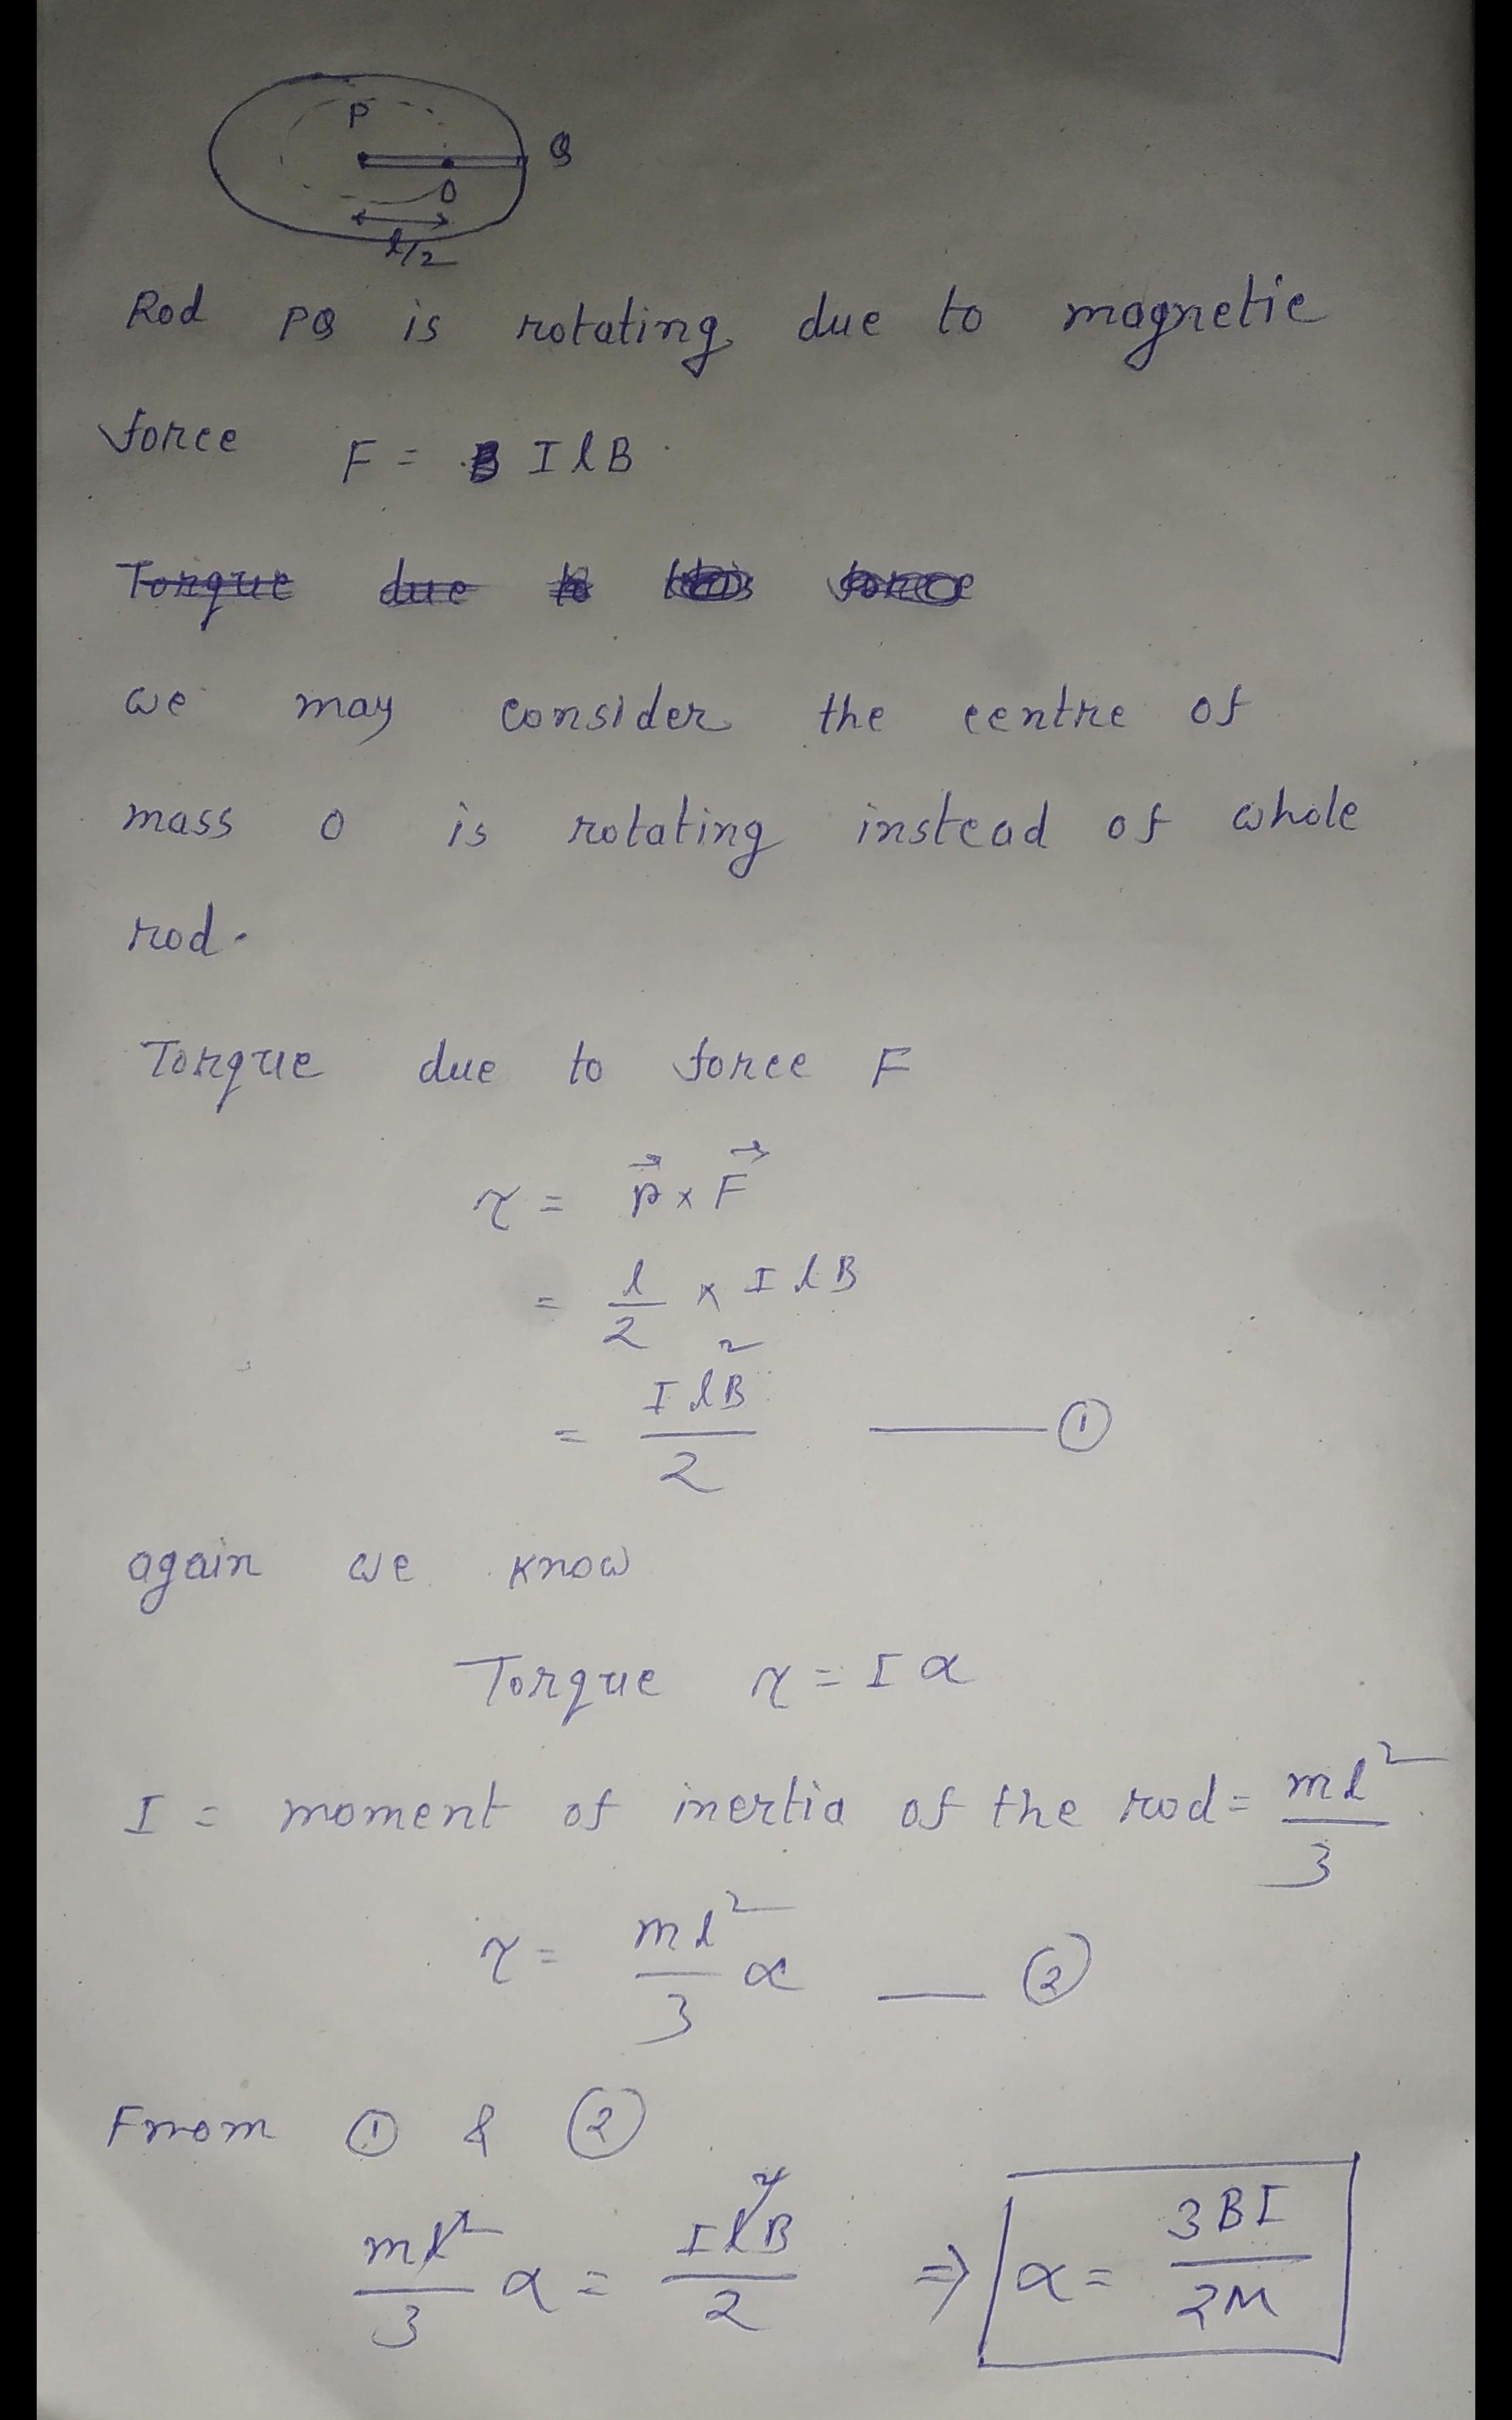 P
Q
O
l/2
Rod PQ is rotating due to magnetic
force F = I l B
Torque due to this force
we may consider the centre of
mass O is rotating instead of whole
rod.
Torque due to force F
τ = r⃗ × F⃗
= l/2 × I l B
= I l²B / 2 —— ①
again we know
Torque τ = I α
I = moment of inertia of the rod = ml²/3
τ = ml²/3 α — ②
From ① & ②
ml²/3 α = I l²B / 2 ⇒ α = 3BI / 2M